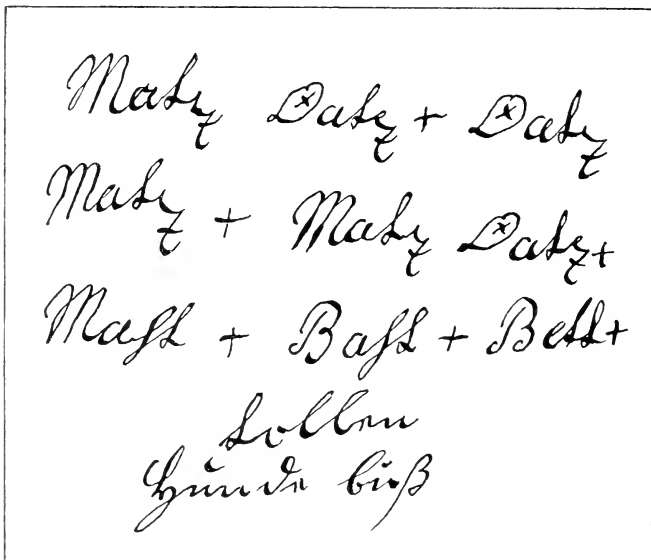 Matz Datz + Datz
Matz + Matz Datz +
Mast + Bast + Bett +
tollen
Hunde biß